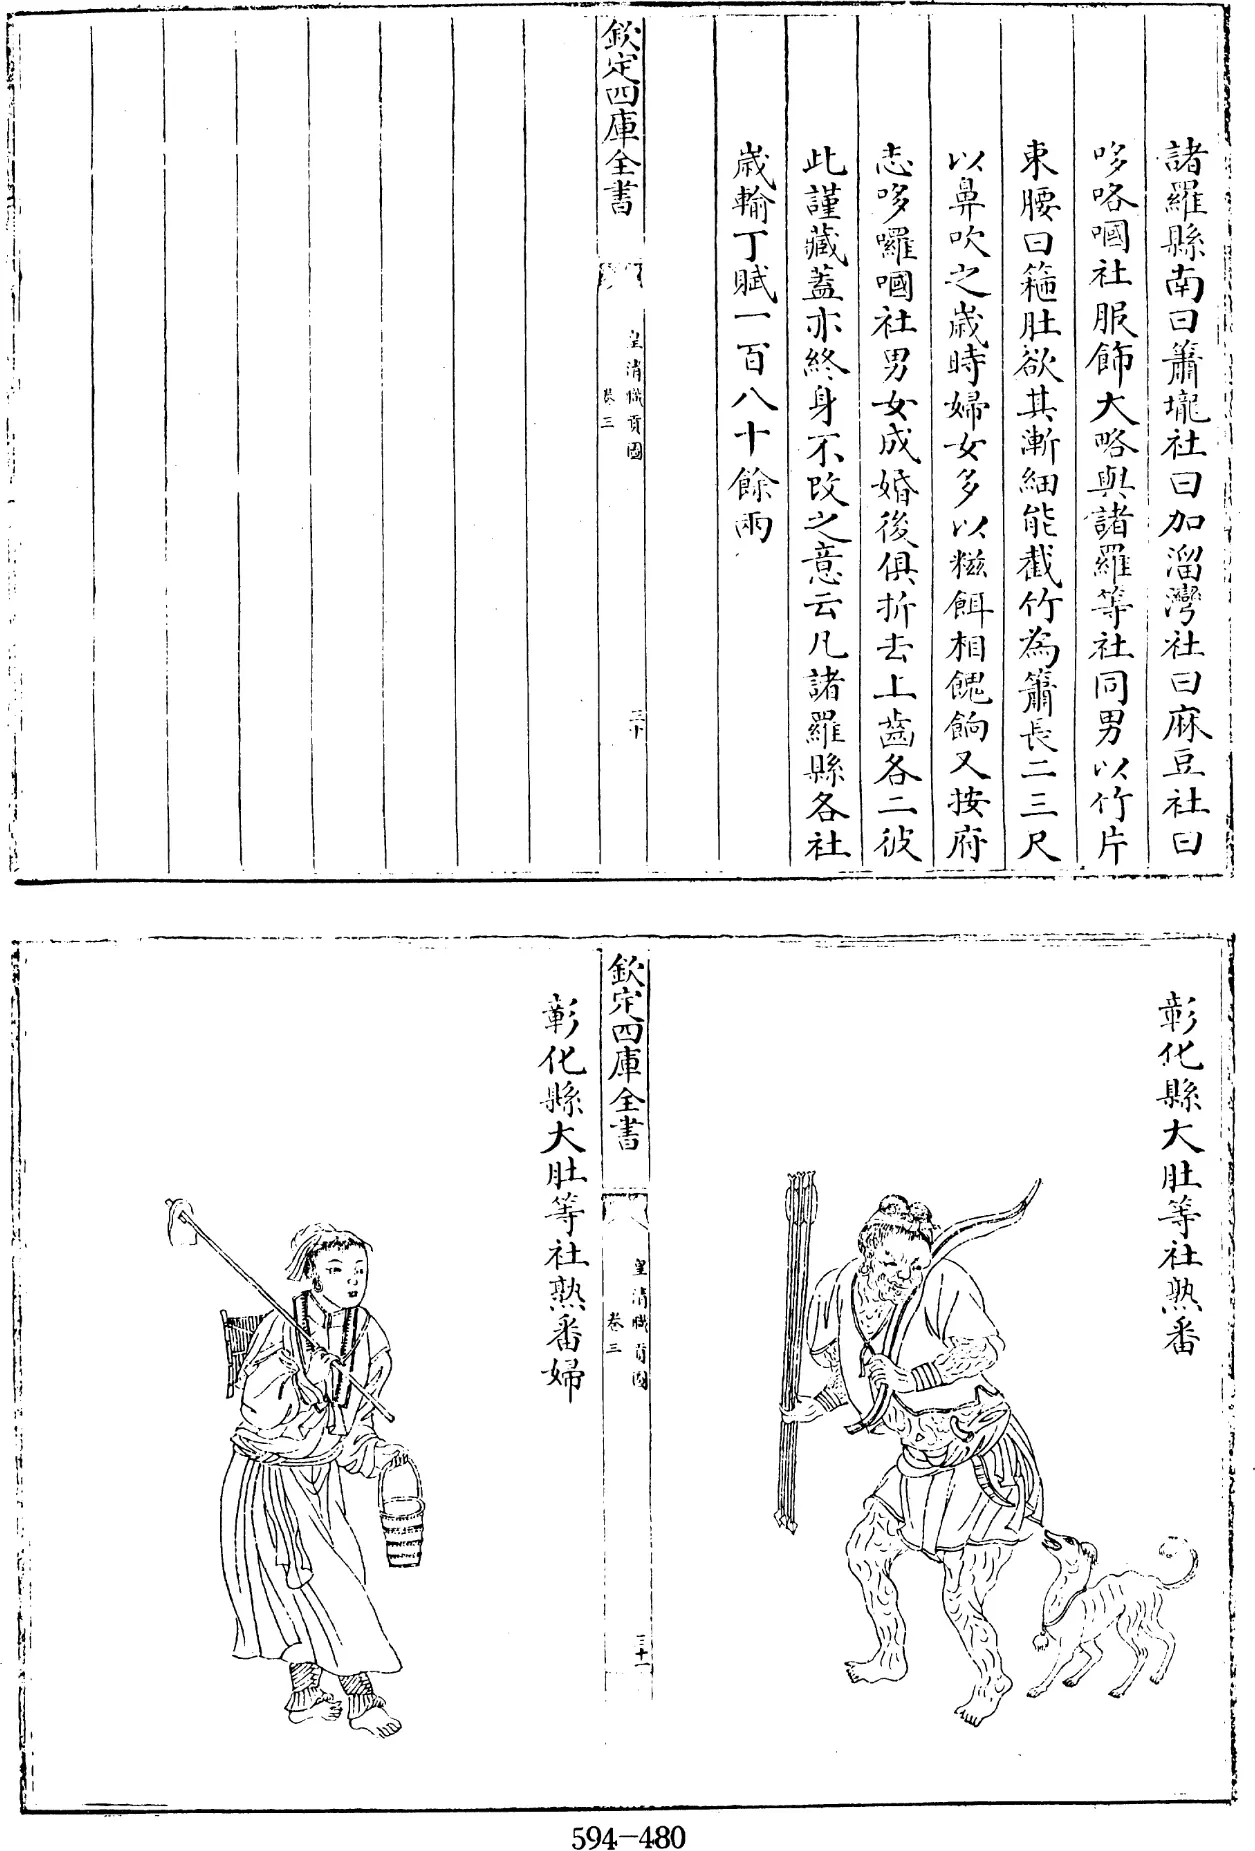 諸羅縣南曰簫壠社曰加溜灣社曰麻豆社曰
哆咯嘓社服飾大略與諸羅等社同男以竹片
束腰曰箍肚欲其漸細能截竹為簫長二三尺
以鼻吹之歲時婦女多以糍餌相餽餉又按府
志哆囉嘓社男女成婚後俱折去上齒各二彼
此謹藏蓋亦終身不改之意云凡諸羅縣各社
歲輸丁賦一百八十餘兩
欽定四庫全書
皇清職貢圖
卷三
三十
彰化縣大肚等社熟番
欽定四庫全書
皇清職貢圖
卷三
三十一
彰化縣大肚等社熟番婦
594-480